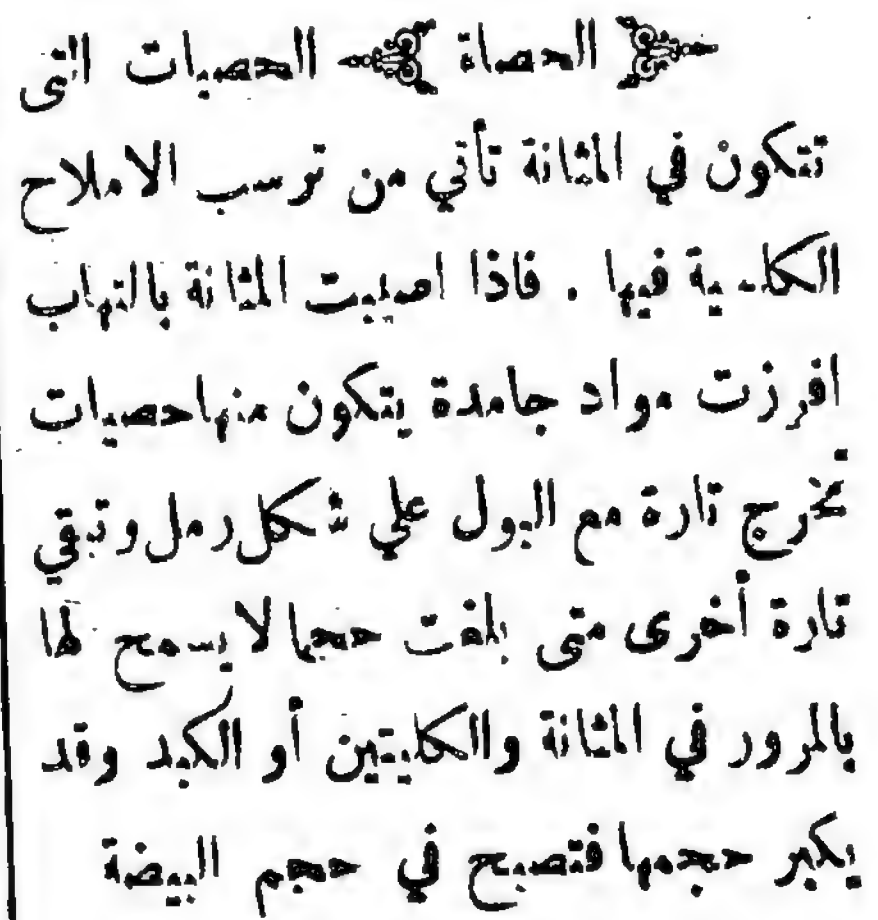 الحصاة الحصيات التي
تتكون في المثانة تأتي من ترسب الاملاح
الكلسية فيها . فاذا اصيبت المثانة بالتهاب
افرزت مواد جامدة يتكون منها حصيات
تخرج تارة مع البول علي شكل رمل وتبقي
تارة أخرى متى بلغت حجما لا يسمح لها
بالمرور في المثانة والكليتين أو الكبد وقد
يكبر حجمها فتصبح في حجم البيضة